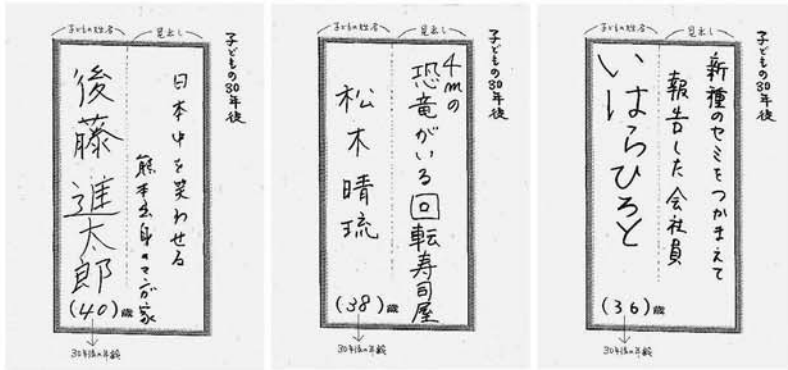 子どもの30年後
見出し
子どもの姓名
日本中を笑わせる
熊本出身のマンガ家
後藤 進太郎
(40)歳
30年後の年齢
子どもの30年後
見出し
子どもの姓名
4mの
恐竜がいる回転寿司屋
松木晴琉
(38)歳
30年後の年齢
子どもの30年後
見出し
子どもの姓名
新種のセミをつかまえて
報告した会社員
いはらひろと
(36)歳
30年後の年齢